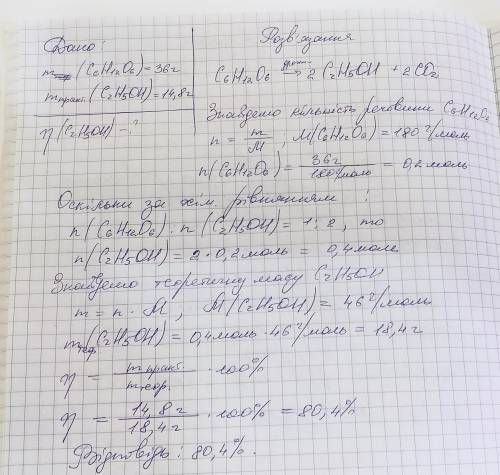 Дано:
m(C6H12O6)=36г
m практ.(C2H5OH)=14,8г
η(C2H5OH) - ?
Розв'язання
C6H12O6 дріжджі→ 2 C2H5OH + 2CO2
Знайдемо кількість речовини C6H12O6
n = m/M, M(C6H12O6) = 180 г/моль
n(C6H12O6) = 36г/180г/моль = 0,2 моль
Оскільки за хім. рівнянням:
n(C6H12O6) : n(C2H5OH) = 1 : 2, то
n(C2H5OH) = 2·0,2 моль = 0,4 моль
Знайдемо теоретичну масу C2H5OH
m = n · M, M(C2H5OH) = 46 г/моль
m теор.(C2H5OH) = 0,4 моль·46 г/моль = 18,4г
η = m практ./m теор. ·100%
η = 14,8г/18,4г ·100% = 80,4%
Відповідь: 80,4%.